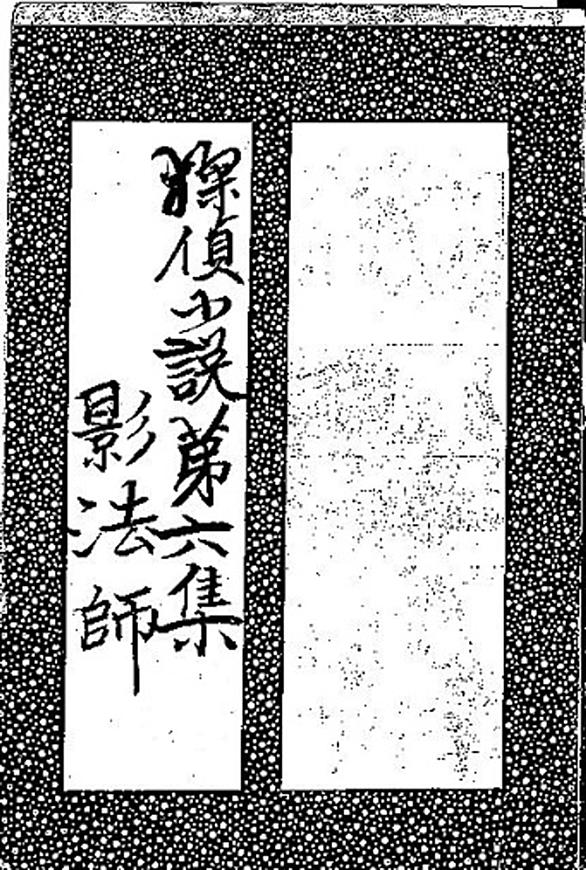 探偵小説第六集
影法師